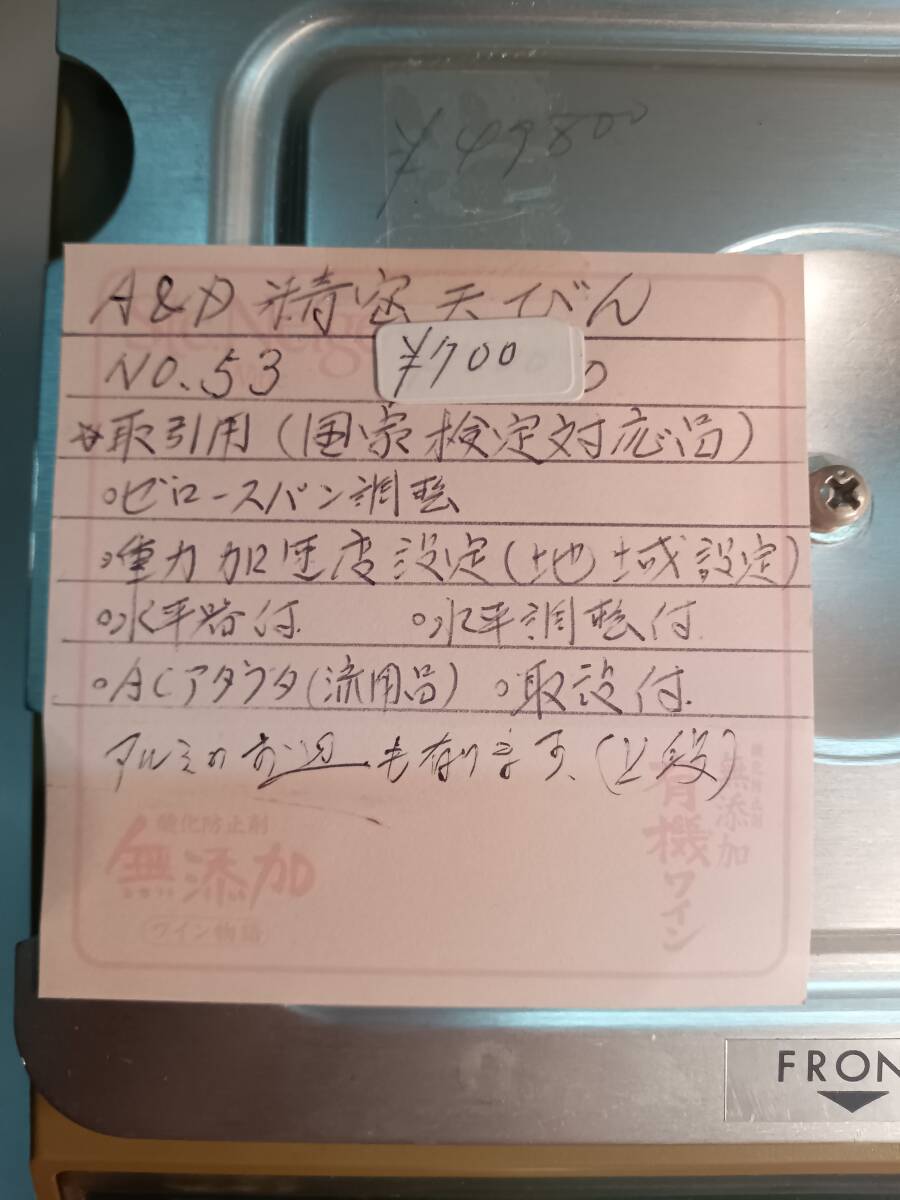 ¥49800
A&D 精密天びん
NO.53 ¥700 0
取引用(国家検定対応品)
○ゼロースパン調整
○重力加速度設定(地域設定)
○水平器付 ○水平調整付
○ACアダプタ(流用品) ○取説付
アルミのお皿も有ります、(上段)
酸化防止剤
無添加
ワイン物語
酸化防止剤
無添加
有機ワイン
FRON